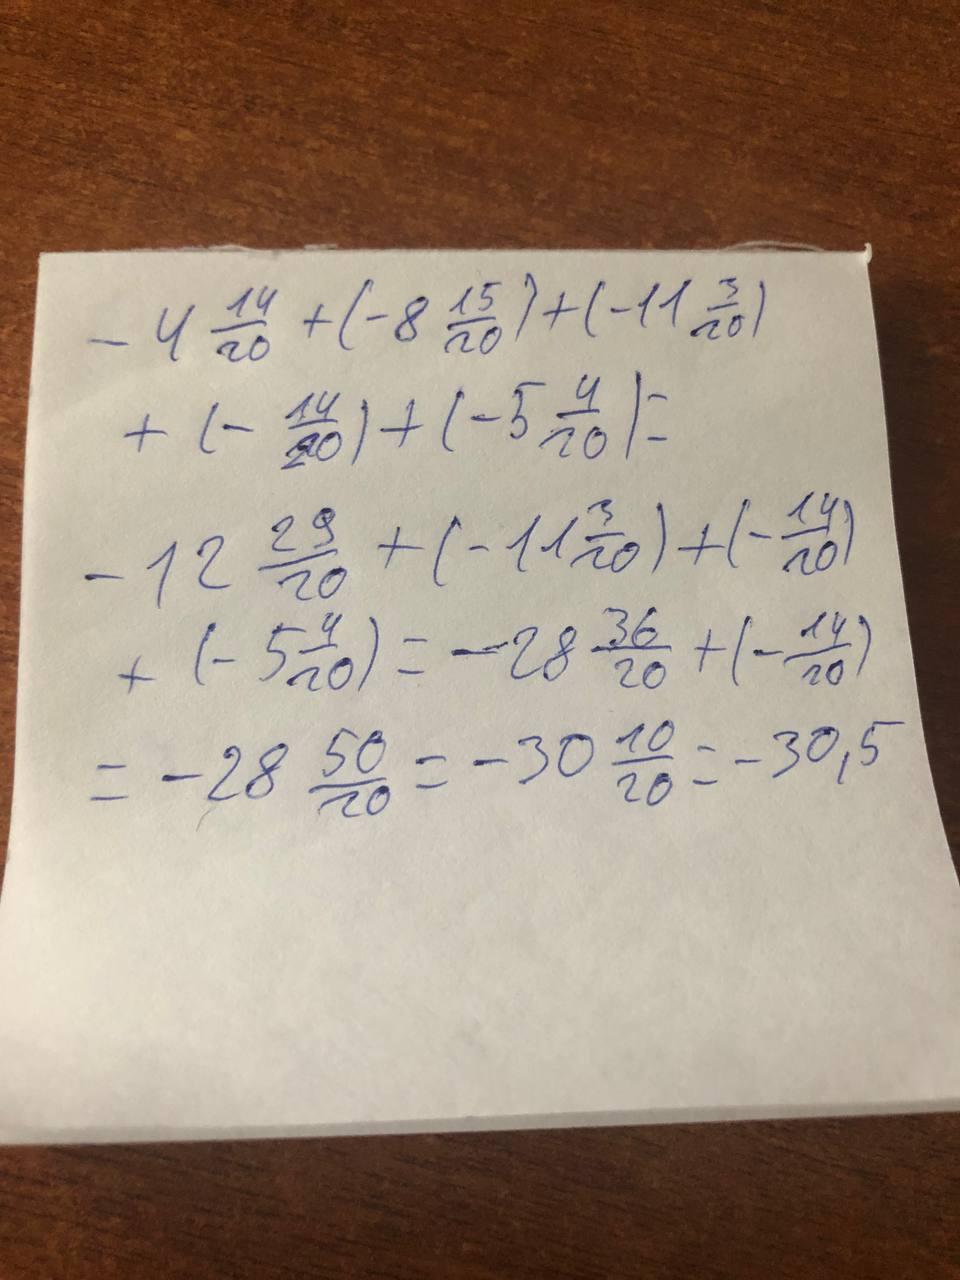 - 4 14/20 + (-8 15/20) + (-11 3/20)
+ (- 14/20) + (-5 4/20) =
- 12 29/20 + (-11 3/20) + (- 14/20)
+ (- 5 4/20) = - 28 36/20 + (- 14/20)
= - 28 50/20 = - 30 10/20 = - 30,5